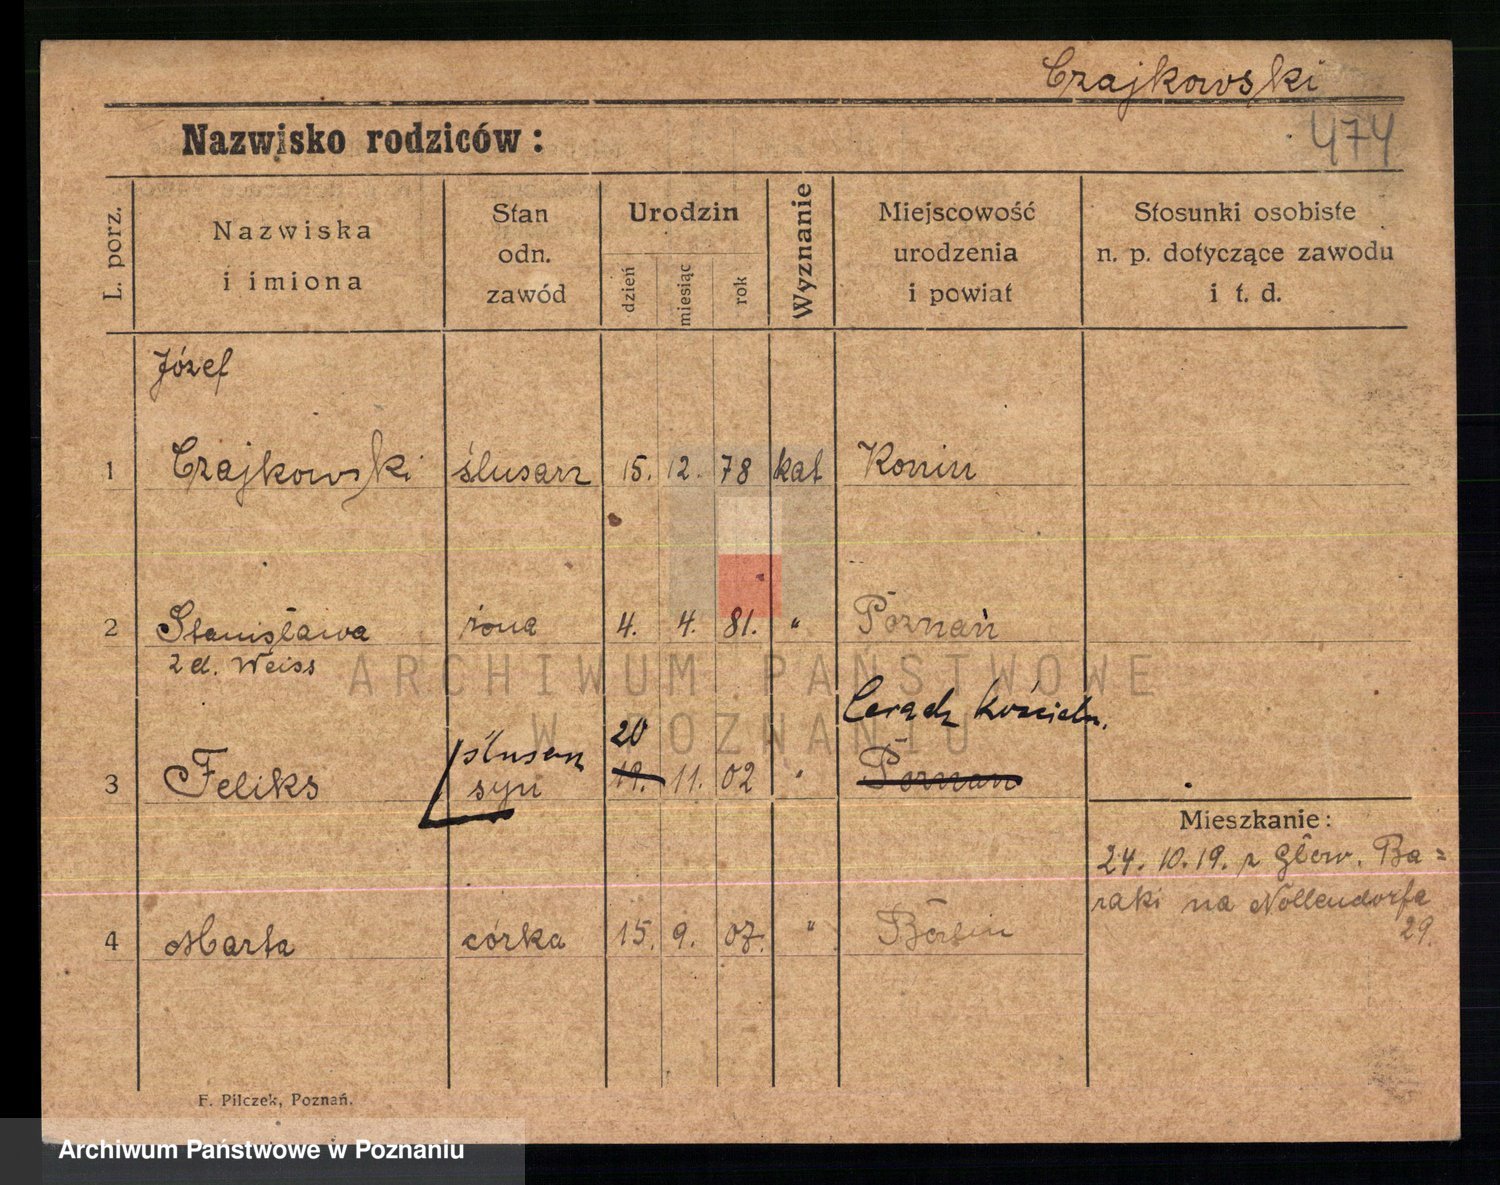 Czajkowski
Nazwisko rodziców:
474
L. porz.
Nazwiska
i imiona
Stan
odn.
zawód
Urodzin
dzień
miesiąc
rok
Wyznanie
Miejscowość
urodzenia
i powiat
Stosunki osobiste
n. p. dotyczące zawodu
i t. d.
Józef
1 Czajkowski ślusarz 15. 12. 78 kat Konin
2 Stanisława żona 4. 4. 81. " Poznań
zd. Weiss
ARCHIWUM PAŃSTWOWE
W POZNANIU
Cerądz Kościeln.
ślusarz 20
3 Feliks syn 19. 11. 02 " Poznań
Mieszkanie:
24. 10. 19. z Głów. Ba=
raki na Nollendorfa
29.
4 Marta córka 15. 9. 07. " Berlin
F. Pilczek, Poznań.
Archiwum Państwowe w Poznaniu